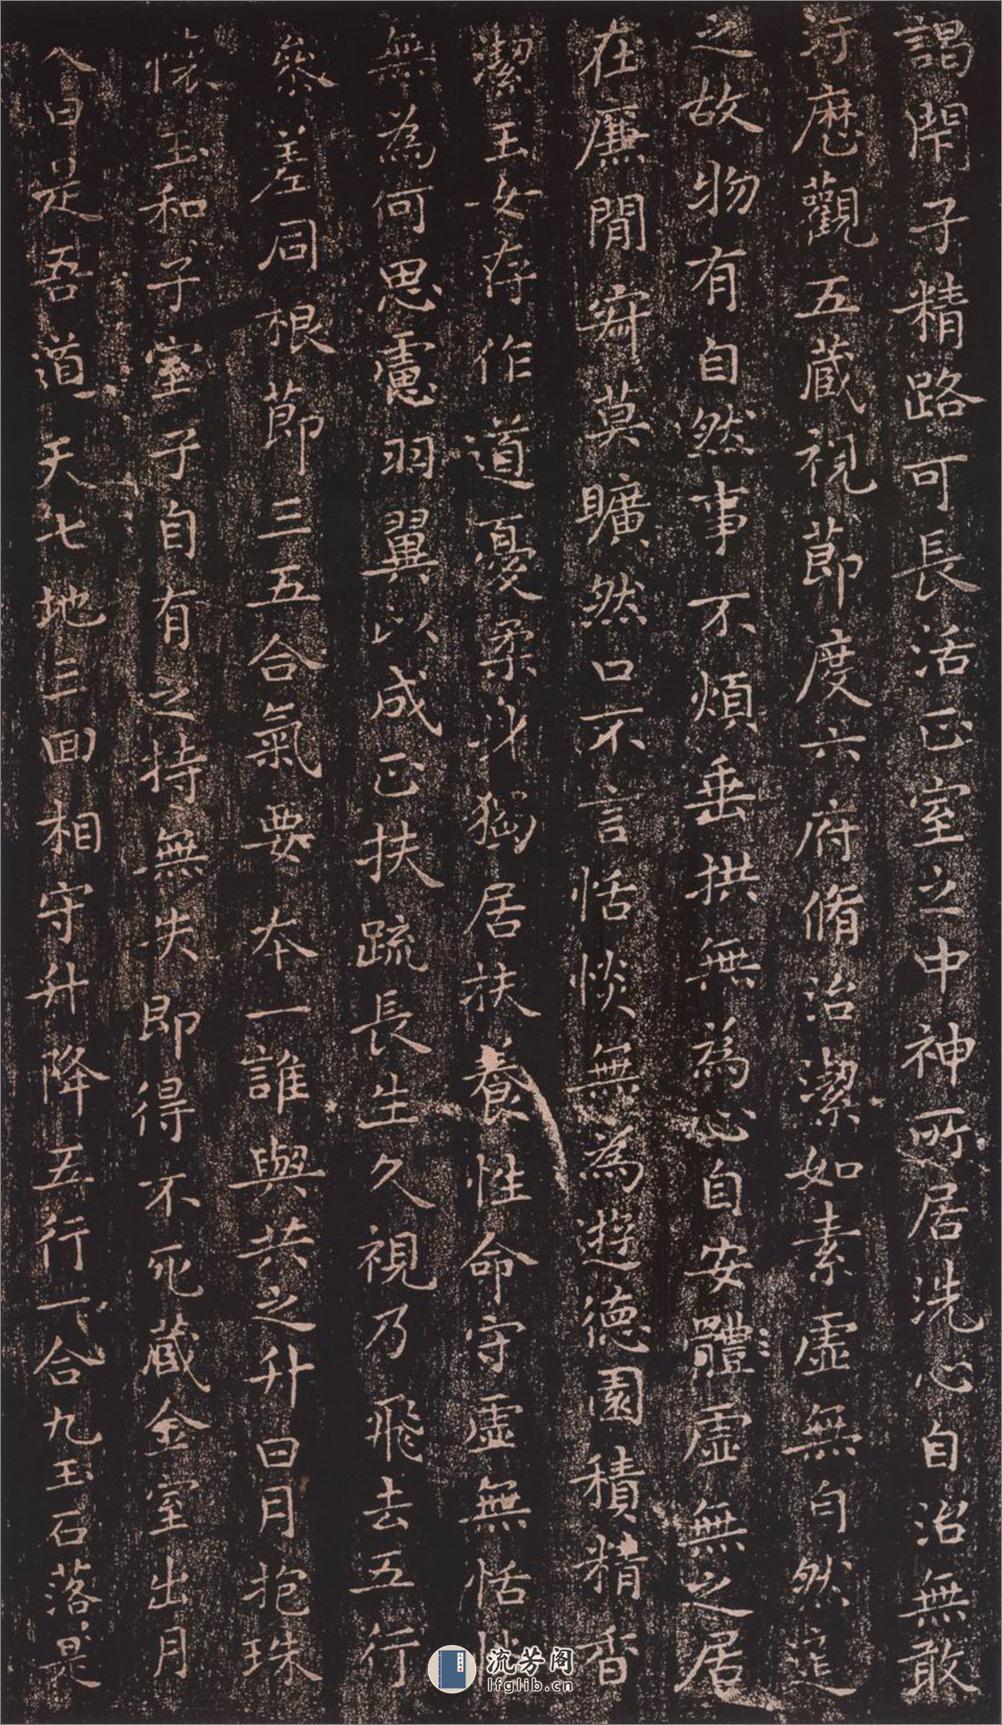 謁閉子精路可長活正室之中神所居洗心自治無敢
汙歷觀五藏視節度六府脩治潔如素虛無自然道
之故物有自然事不煩垂拱無為心自安體虛無之居
在廉間寂莫曠然口不言恬惔無為遊德園積精香
潔玉女存作道憂柔身獨居扶養性命守虛無恬惔
無為何思慮羽翼以成正扶疏長生久視乃飛去五行
參差同根節三五合氣要本一誰與共之升日月抱珠
懷玉和子室子自有之持無失即得不死藏金室出月
入日是吾道天七地三回相守升降五行一合九玉石落是
流芳阁
lfglib.cn